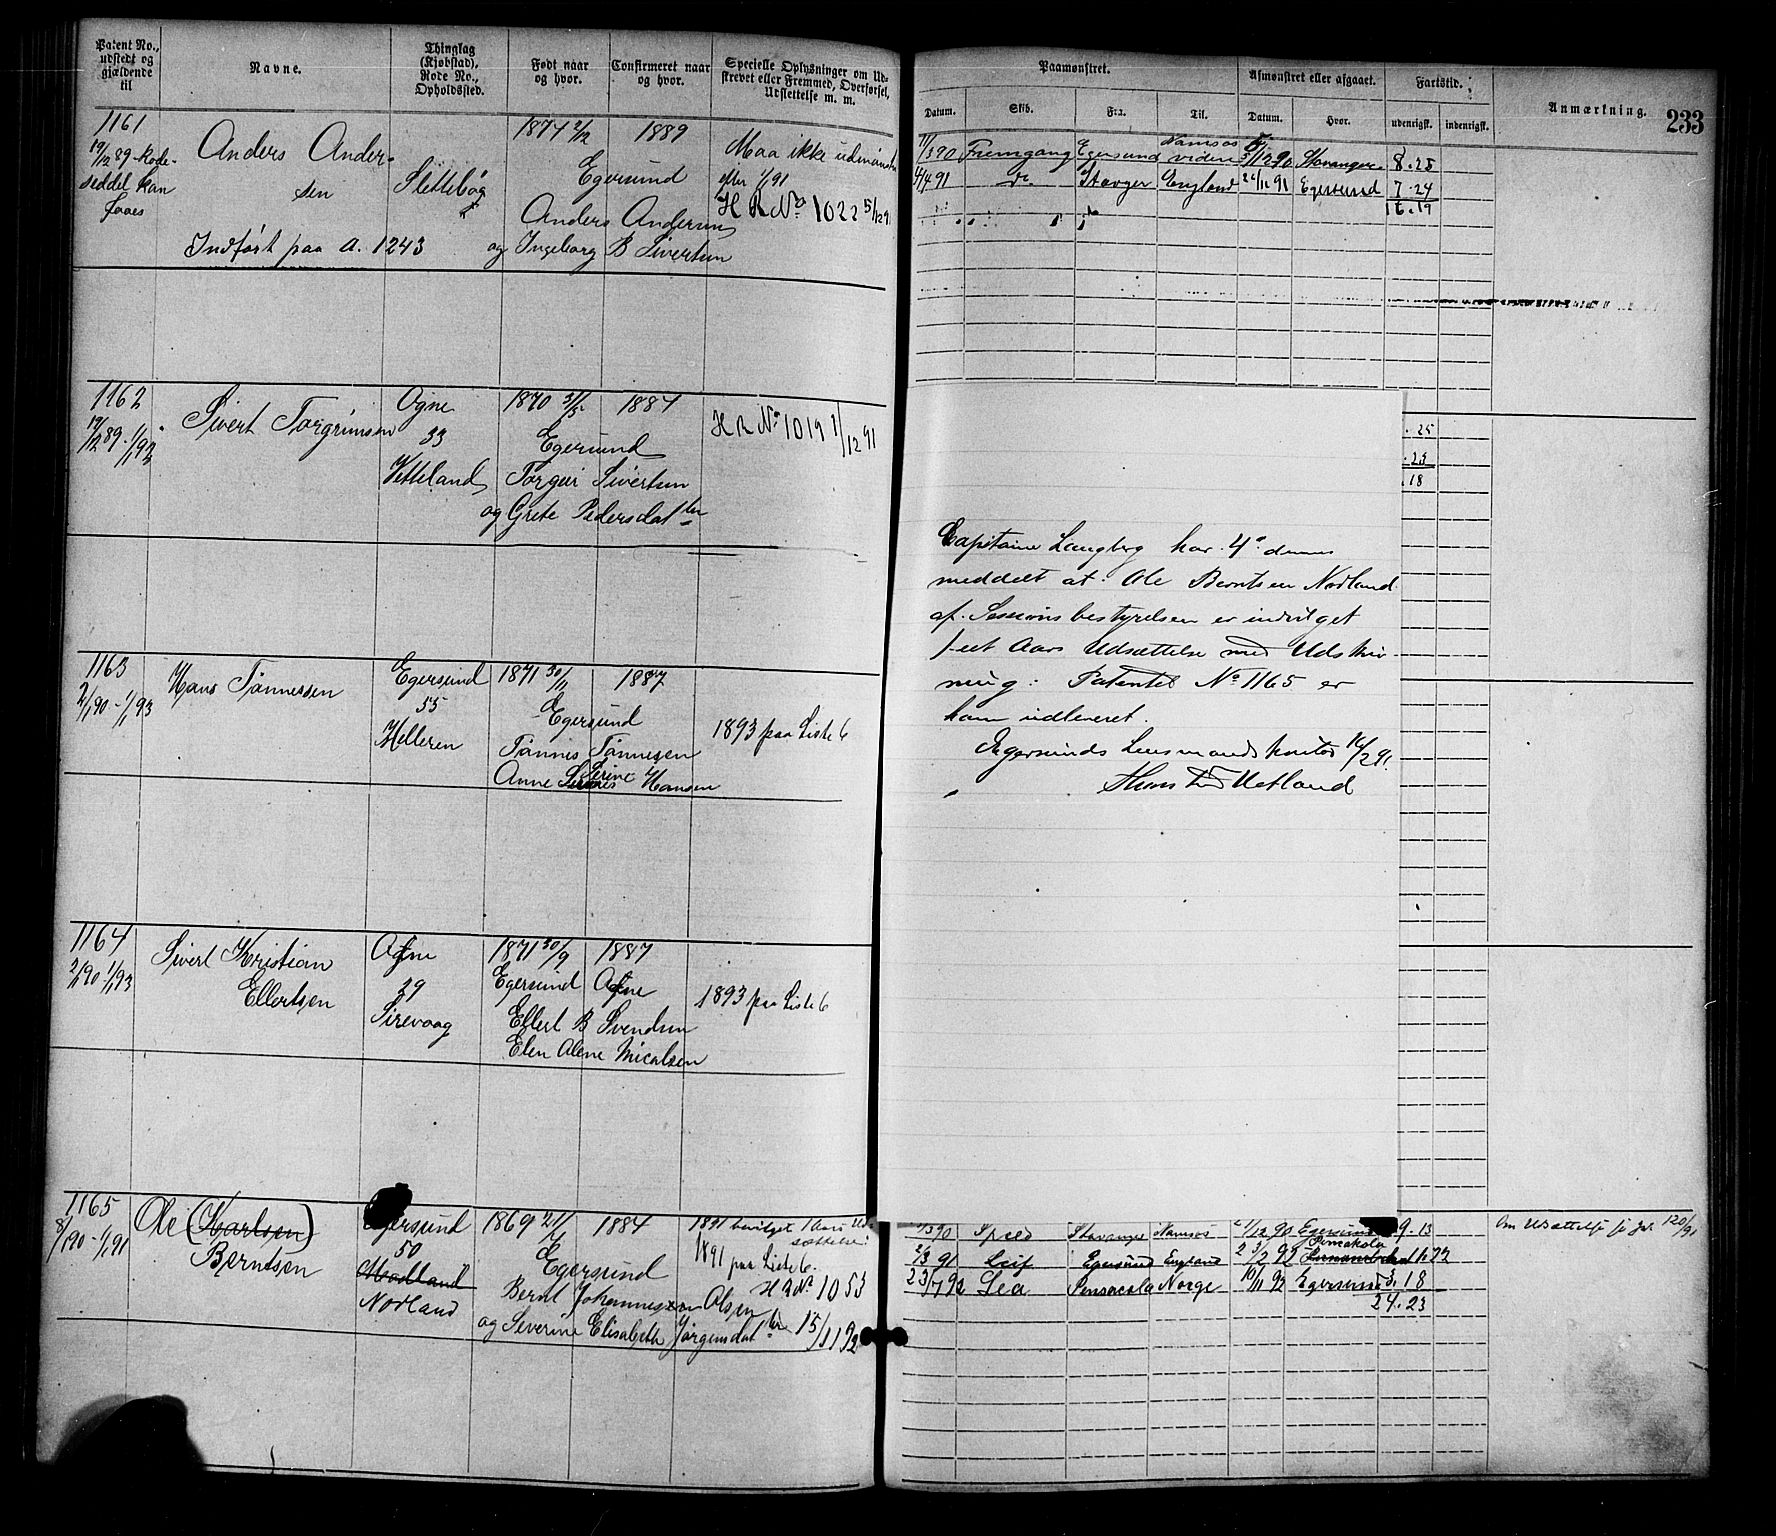 Patent No., udstedt og gjældende til
Navne.
Thinglag (Kjøbstad), Rode No., Opholdssted.
Født naar og hvor.
Confirmeret naar og hvor.
Specielle Oplysninger om Udskrevet eller Fremmed, Overførsel, Udslettelse m. m.
Paamønstret.
Datum.
Skib.
Fra.
Til.
Afmønstret eller afgaaet.
Datum.
Hvor.
Fartstid.
udenrigsk.
indenrigsk.
Anmærkning.
233
1161
19/12 89 - Rode-
seddel kan
faaes
Anders Ander-
sen
Slettebøg
1874 2/12
1889
Egersund
Anders Andersen
og Ingeborg B Sivertsen
Maa ikke udmønstr
efter 1/1 91
H R No 1022 5/12 91
Indført paa A. 1243
11/3 90 Fremgang Egersund Namsos videre 5/12 90 Stavanger 8.25
14/4 91 do. Stavger England 22/11 91 Egersund 7.24
16.19
1162
19/12 89 - 1/1 92
Sivert Torgrimsen
Ogne
33
Vetteland
1870 3/5
1884
Egersund
Torger Sivertsen
og Grete Pedersdatter
H R No 1019 1/12 91
.25
.23
.18
1163
2/1 90 - 1/1 93
Hans Tønnessen
Egersund
55
Helleren
1871 30/11
1887
Egersund
Tønnes Tønnesen
Anne Serine Hansen
1893 paa Liste 6
1164
2/1 90 1/1 93
Sivert Kristian
Ellertsen
Ogne
29
Sirevaag
1871 30/9
1887
Egersund Ogne
Ellert B Svendsen
Elen Alene Micalsen
1893 paa Liste 6
Capitaine Langberg har 4de dennes
meddelt at Ole Berntsen Nodland
af Sessionsbestyrelsen er indvilget
1 et Aars Udsættelse med Udskriv
ning: Patentet No 1165 er
ham udleveret.
Egersunds Lensmandskontor 16/2 91.
Thom Th Vetland
1165
8/1 90 - 1/1 91
Ole (Karlsen)
Berntsen
Egersund
50
Modland
Nodland
1869 21/1
1884
Egersund
Bernt Johannessen Olsen
og Severine Elisabeth Jørgensdatter
1891 bevilget 1 Aars Ud-
sættelse
1891 paa Liste 6.
H R No 1053
15/11 92
/3 90 Speed Stavanger Namsos 21/12 90 Egersund 9.13
2/3 91 Leif Egersund England 23/2 92 Pensakola 11.22
23/7 92 Lea Pensacola Norge 10/11 92 Egersund 3.18
24.23
Om Udsættelse se Jr. 120/91